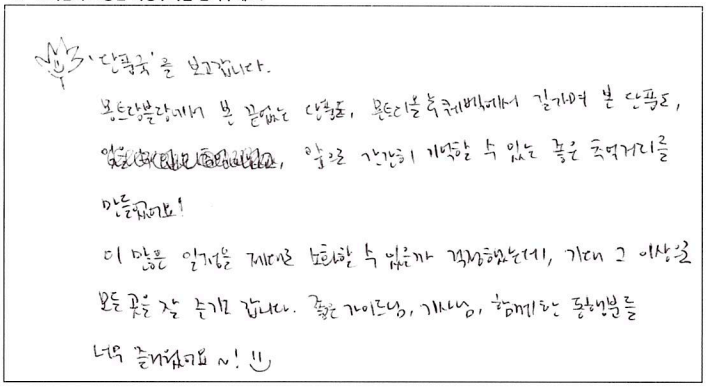 '단풍국'을 보고갑니다.
몽트랑블랑에서 본 끝없는 단풍도, 몬트리올 & 퀘벡에서 길가며 본 단풍도,
앞으로 간간히 기억할 수 있는 좋은 추억거리를
만들었어요!
이 많은 일정을 제대로 소화할 수 있을까 걱정했는데, 기대 그 이상으로
모든 곳을 잘 즐기고 갑니다. 좋은 가이드님, 기사님, 함께한 동행분들
너무 즐거웠어요~!